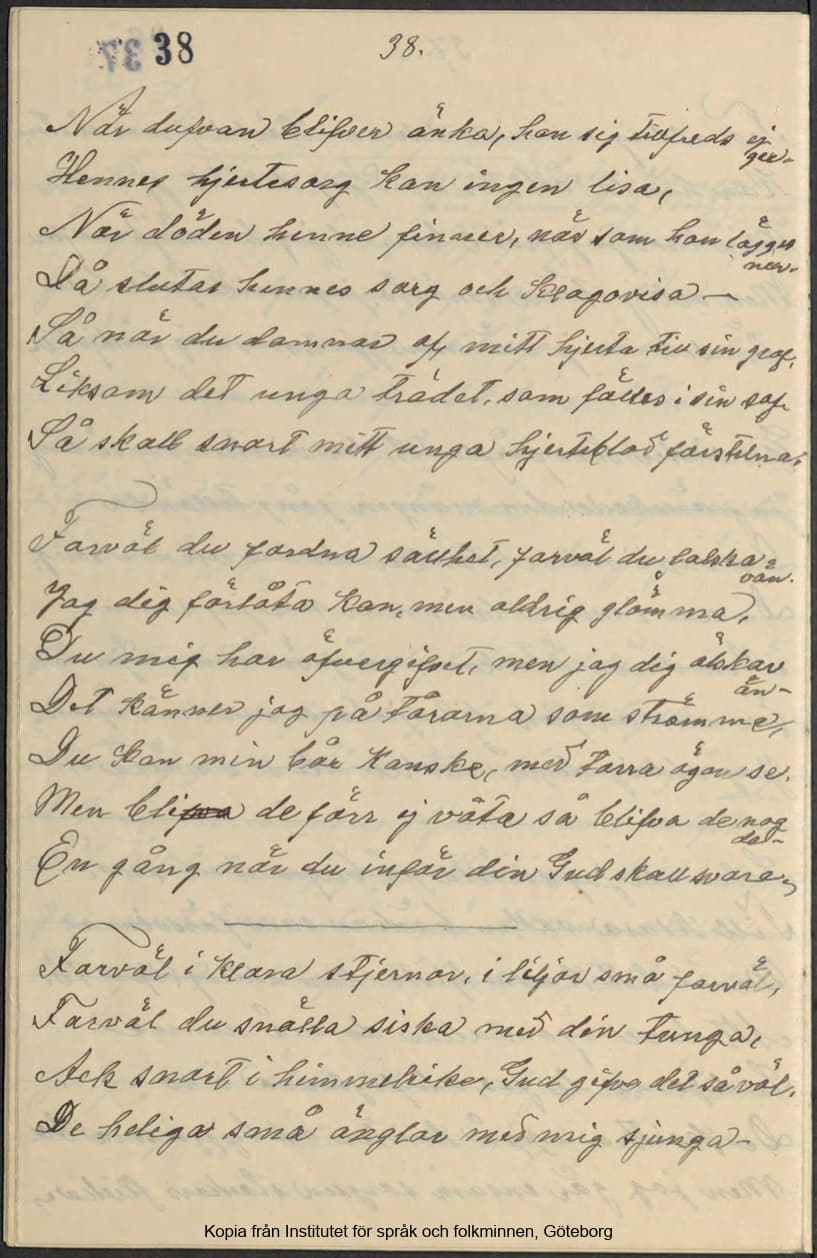 38 38.
När dufvan blifver änka, hon sig tillfreds ej ger-
Hennes hjertesorg kan ingen lisa,
När döden henne finner, när som hon lägges ner.
Då slutas hennes sorg och klagovisa—
Så när du domnar af mitt hjerta till sin graf,
Liksom det unga trädet, som fälles i sin saf
Så skall snart mitt unga hjerteblod förstelna,
Farväl du fordna sällhet, farväl du falska vän.
Jag dig förlåta kan, men aldrig glömma,
Du mig har öfvergifvet, men jag dig älskar än-
Det känner jag på tårarna som strömma,
Du kan min bår kanske, med torra ögon se.
Men blifva de förr ej våta så blifva de nog de-
En gång när du inför din Gud skall svara,
Farväl i klara stjernor, i liljor små farväl,
Farväl du snälla siska med din tunga,
Ack snart i himmelrike, Gud gifve det så väl.
De heliga små änglar med mig sjunga—
Kopia från Institutet för språk och folkminnen, Göteborg